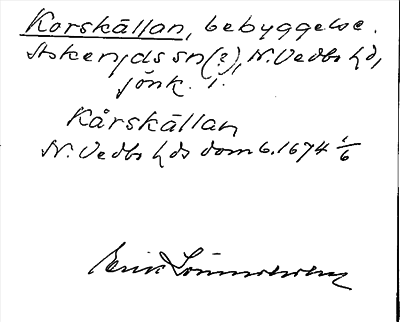 Korskällan, bebyggelse.
Askeryds sn(?), N. Vedbo hd,
Jönk. l.
Kårskällan
N. Vedbo hds domb. 1674 1/6
Erik